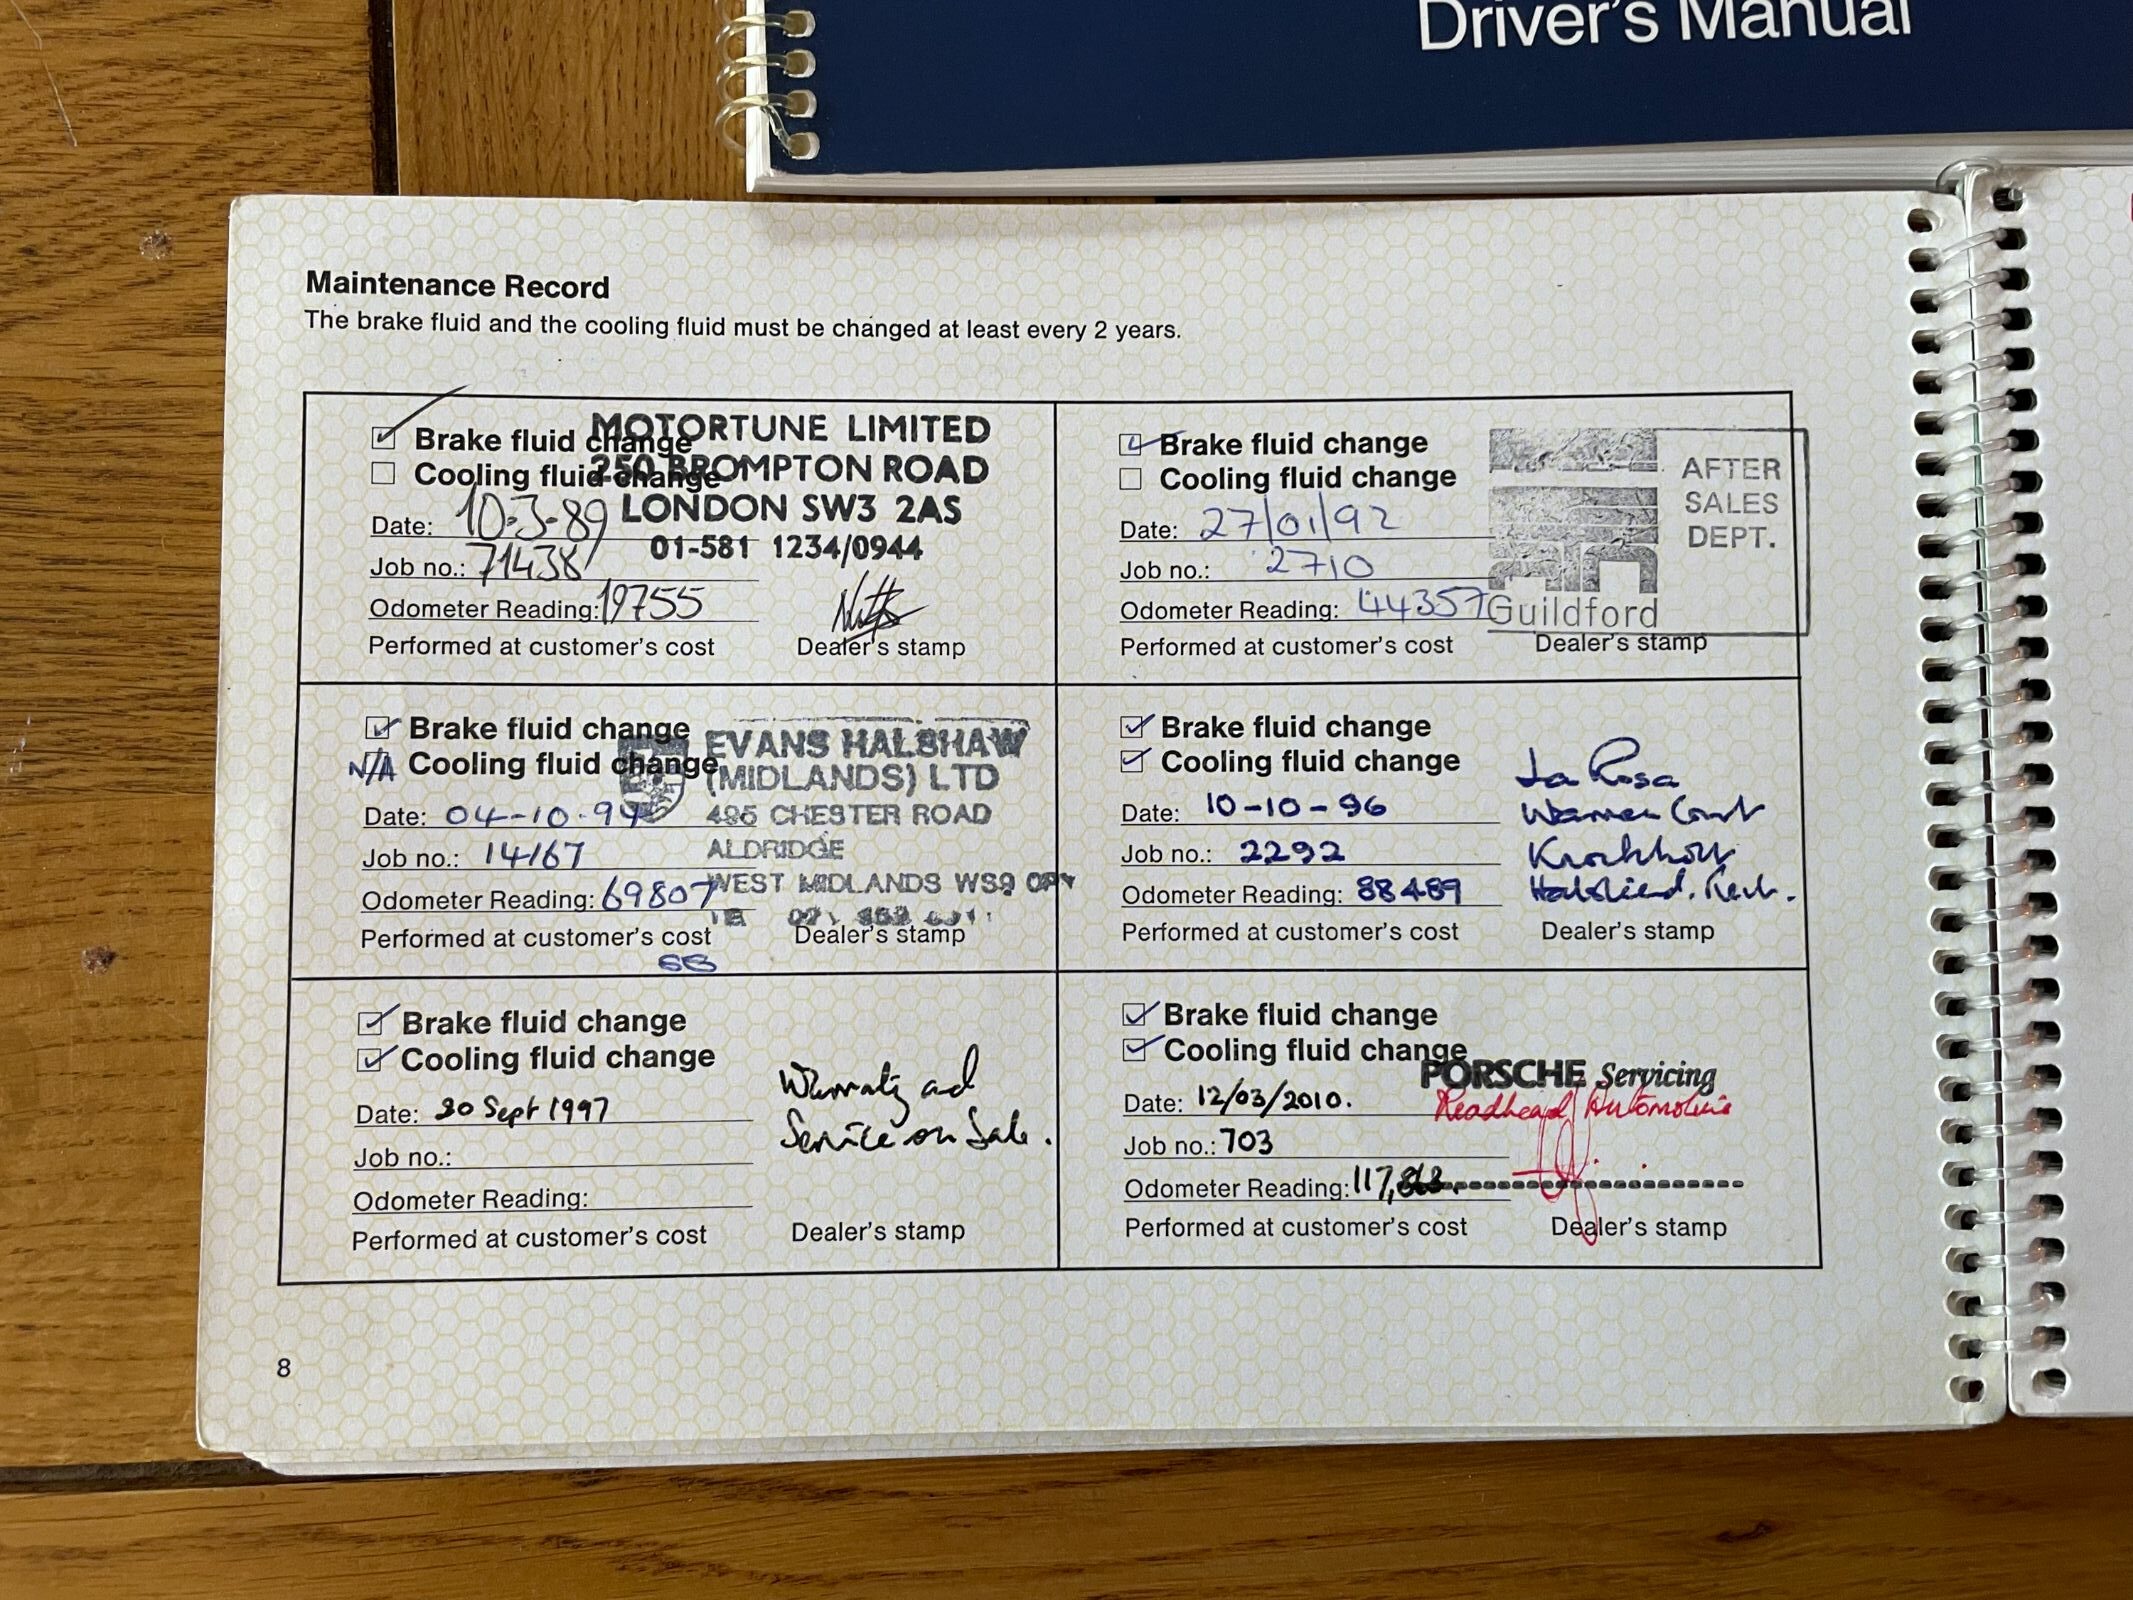 Driver's Manual
Maintenance Record
The brake fluid and the cooling fluid must be changed at least every 2 years.
Brake fluid change
Cooling fluid change
Date: 10-3-89
Job no.: 71438
Odometer Reading: 19755
Performed at customer's cost
MOTORTUNE LIMITED
250 BROMPTON ROAD
LONDON SW3 2AS
01-581 1234/0944
Dealer's stamp
Brake fluid change
Cooling fluid change
Date: 27/01/92
Job no.: 2710
Odometer Reading: 44357
Performed at customer's cost
AFTER
SALES
DEPT.
Guildford
Dealer's stamp
Brake fluid change
N/A Cooling fluid change
Date: 04-10-94
Job no.: 14167
Odometer Reading: 69807
Performed at customer's cost
EVANS HALSHAW
(MIDLANDS) LTD
495 CHESTER ROAD
ALDRIDGE
WEST MIDLANDS WS9
Dealer's stamp
Brake fluid change
Cooling fluid change
Date: 10-10-96
Job no.: 2292
Odometer Reading: 88489
Performed at customer's cost
La Rosa
Warren Court
Knockholt
Halstead. Kent.
Dealer's stamp
Brake fluid change
Cooling fluid change
Date: 20 Sept 1997
Job no.:
Odometer Reading:
Performed at customer's cost
Warranty and
Service on Sale.
Dealer's stamp
Brake fluid change
Cooling fluid change
Date: 12/03/2010.
Job no.: 703
Odometer Reading:
Performed at customer's cost
PORSCHE Servicing
Readhead Automotive
Dealer's stamp
8